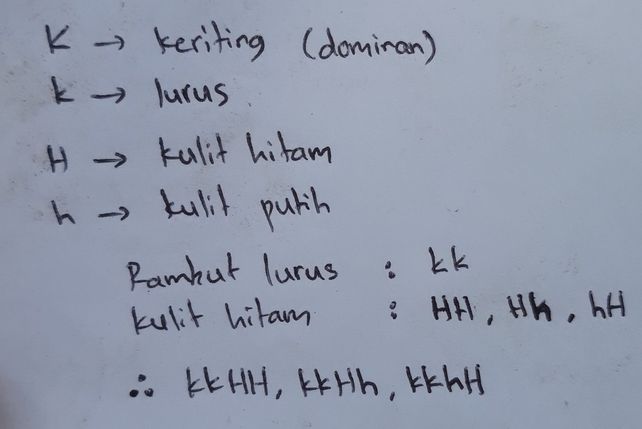 K → keriting (dominan)
k → lurus
H → kulit hitam
h → kulit putih
Rambut lurus : kk
kulit hitam : HH, Hh, hH
∴ kkHH, kkHh, kkhH